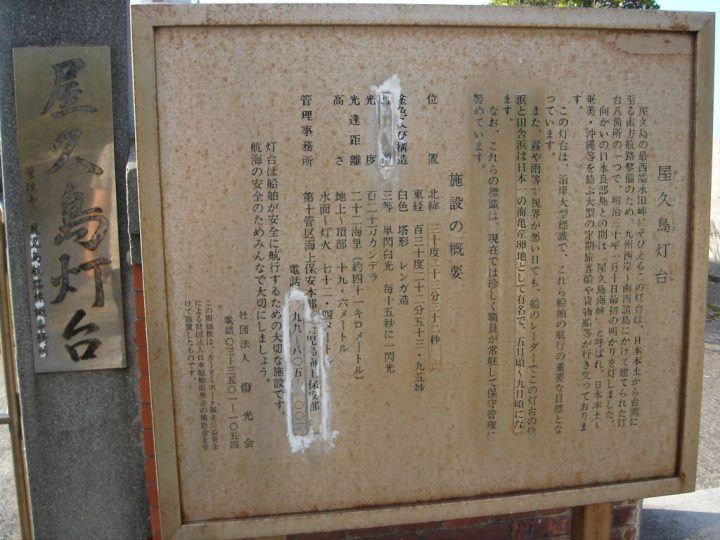 屋久島灯台
屋久島灯台
屋久島の最西端永田岬にそびえるこの灯台は、日本本土から台湾に
至る南方航路整備のため、九州西岸〜南西諸島にかけて建てられた灯
台八箇所の一つで、明治三十年一月十日最初の明かりを灯しました。
向かいの口永良部島との間は「屋久島海峡」と呼ばれ、日本本土〜
奄美・沖縄等を結ぶ大型の定期旅客船や貨物船等が行き交っておりま
す。
この灯台は、沿岸大型標識で、これら船舶の航行の重要な目標とな
っています。
また、霧や雨等で視界が悪い日でも、船のレーダーでこの灯台の
浜と田舎浜は日本一の海亀産卵地として有名で、五月頃〜九月頃にな
ます。
なお、これらの標識は、現在では珍しく職員が常駐して保守管理に
努めています。
施設の概要
位置 北緯 三十度二十三分二十二秒
東経 百三十度二十二分五十三・九五秒
塗色及び構造 白色 塔形 レンガ造
三等 単閃白光 毎十五秒に一閃光
光度 百二十万カンデラ
光達距離 二十二海里（約四十一キロメートル）
高さ 地上〜頂部 十九・六メートル
水面〜灯火 七十二・四メートル
管理事務所 第十管区海上保安本部 海上保安部
電話
灯台は船舶が安全に航行するための大切な施設です。
航海の安全のためみんなで大切にしましょう。
社団法人 燈光会
電話 〇三ー三五〇一ー一〇五四
この周知板は、モーターボート競走公益資金
による財団法人日本船舶振興会の補助金を受
けて設置したものです。